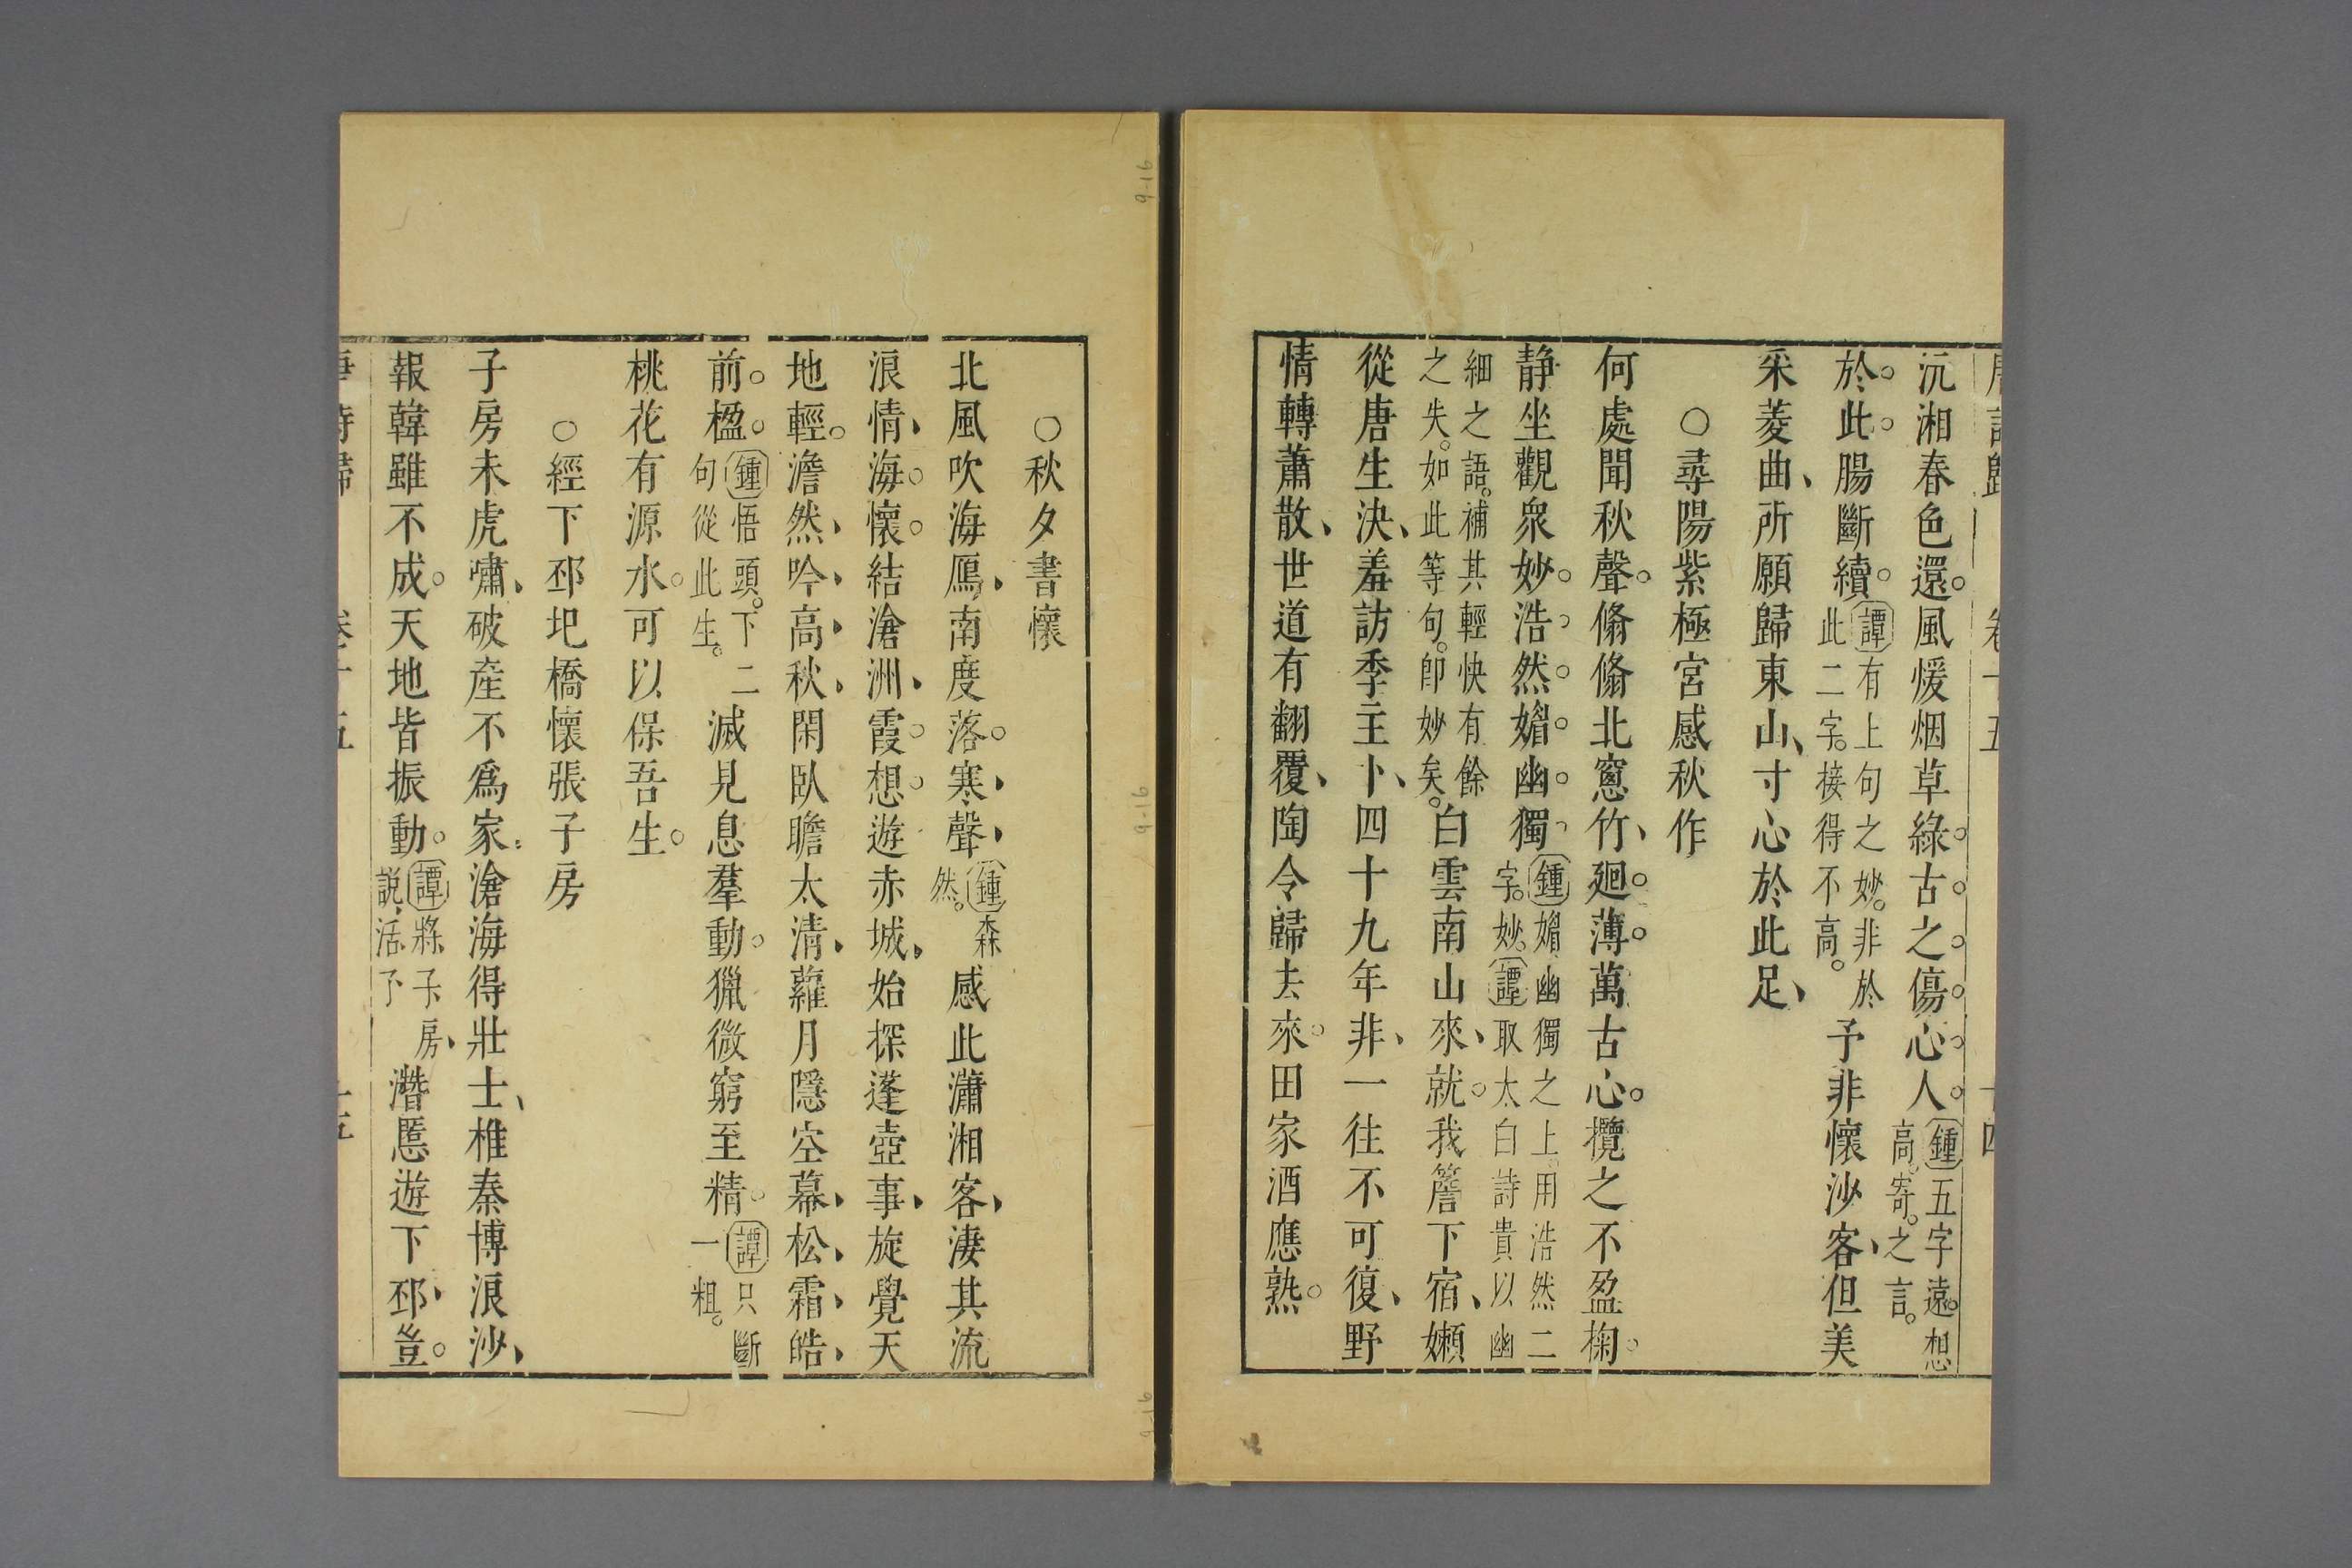 沅湘春色還。風煖烟草綠。古。之。傷。心。人。鍾五字遠。想高。寄。之言。
於。此。腸斷續。譚有上句之妙。非於此二字。接得不高。予非懷沙客、但美
采菱曲、所願歸東山、寸心於此足、
○尋陽紫極宮感秋作
何處聞秋聲。翛翛北窻竹、廻。薄。萬古心。攬之不盈掬。
静坐觀衆妙。浩。然。媚。幽。獨、鍾媚幽獨之上。用浩然二字。妙。譚取太白詩貴以幽
細之語。補其輕快有餘之失。如此等句。卽妙妙矣。白雲南山來、就。我簷下宿、嬾
從唐生決、羞訪季主卜、四十九年非、一往不可復、野
情轉蕭散、世道有翻覆、陶令歸去來。田家酒應熟。
○秋夕書懷
北風吹海鴈、南度落。寒、聲、鍾森然。感此瀟湘客、淒其流
浪情、海。懷。結滄洲、霞。想。遊赤城、始探蓬壺事、旋覺天
地輕。澹然、吟、高、秋、閑臥瞻太清、蘿月隱空幕、松、霜、皓、
前。楹。鍾悟頭。下二句從此生。滅見息羣動。獵微窮至精。譚只斷一粗。
桃花有源水。可以保吾生。
○經下邳圯橋懷張子房
子房未虎嘯、破産不爲家、滄海得壯士、椎秦博浪沙、
報韓雖不成。天地皆振動。譚將子房、説、活、予潛匿遊下邳、豈。
唐詩歸 卷十五 十五